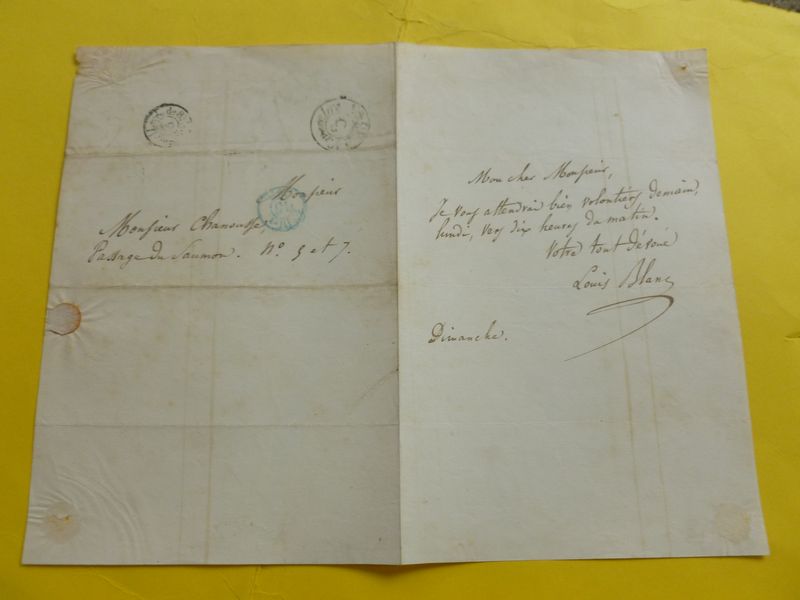 Monsieur
Monsieur Chanousse,
Passage du Saumon. No. 5 et 7.
Mon cher Monsieur,
Je vous attendrai bien volontiers demain,
lundi, vers dix heures du matin.
Votre tout dévoué
Louis Blanc
Dimanche.